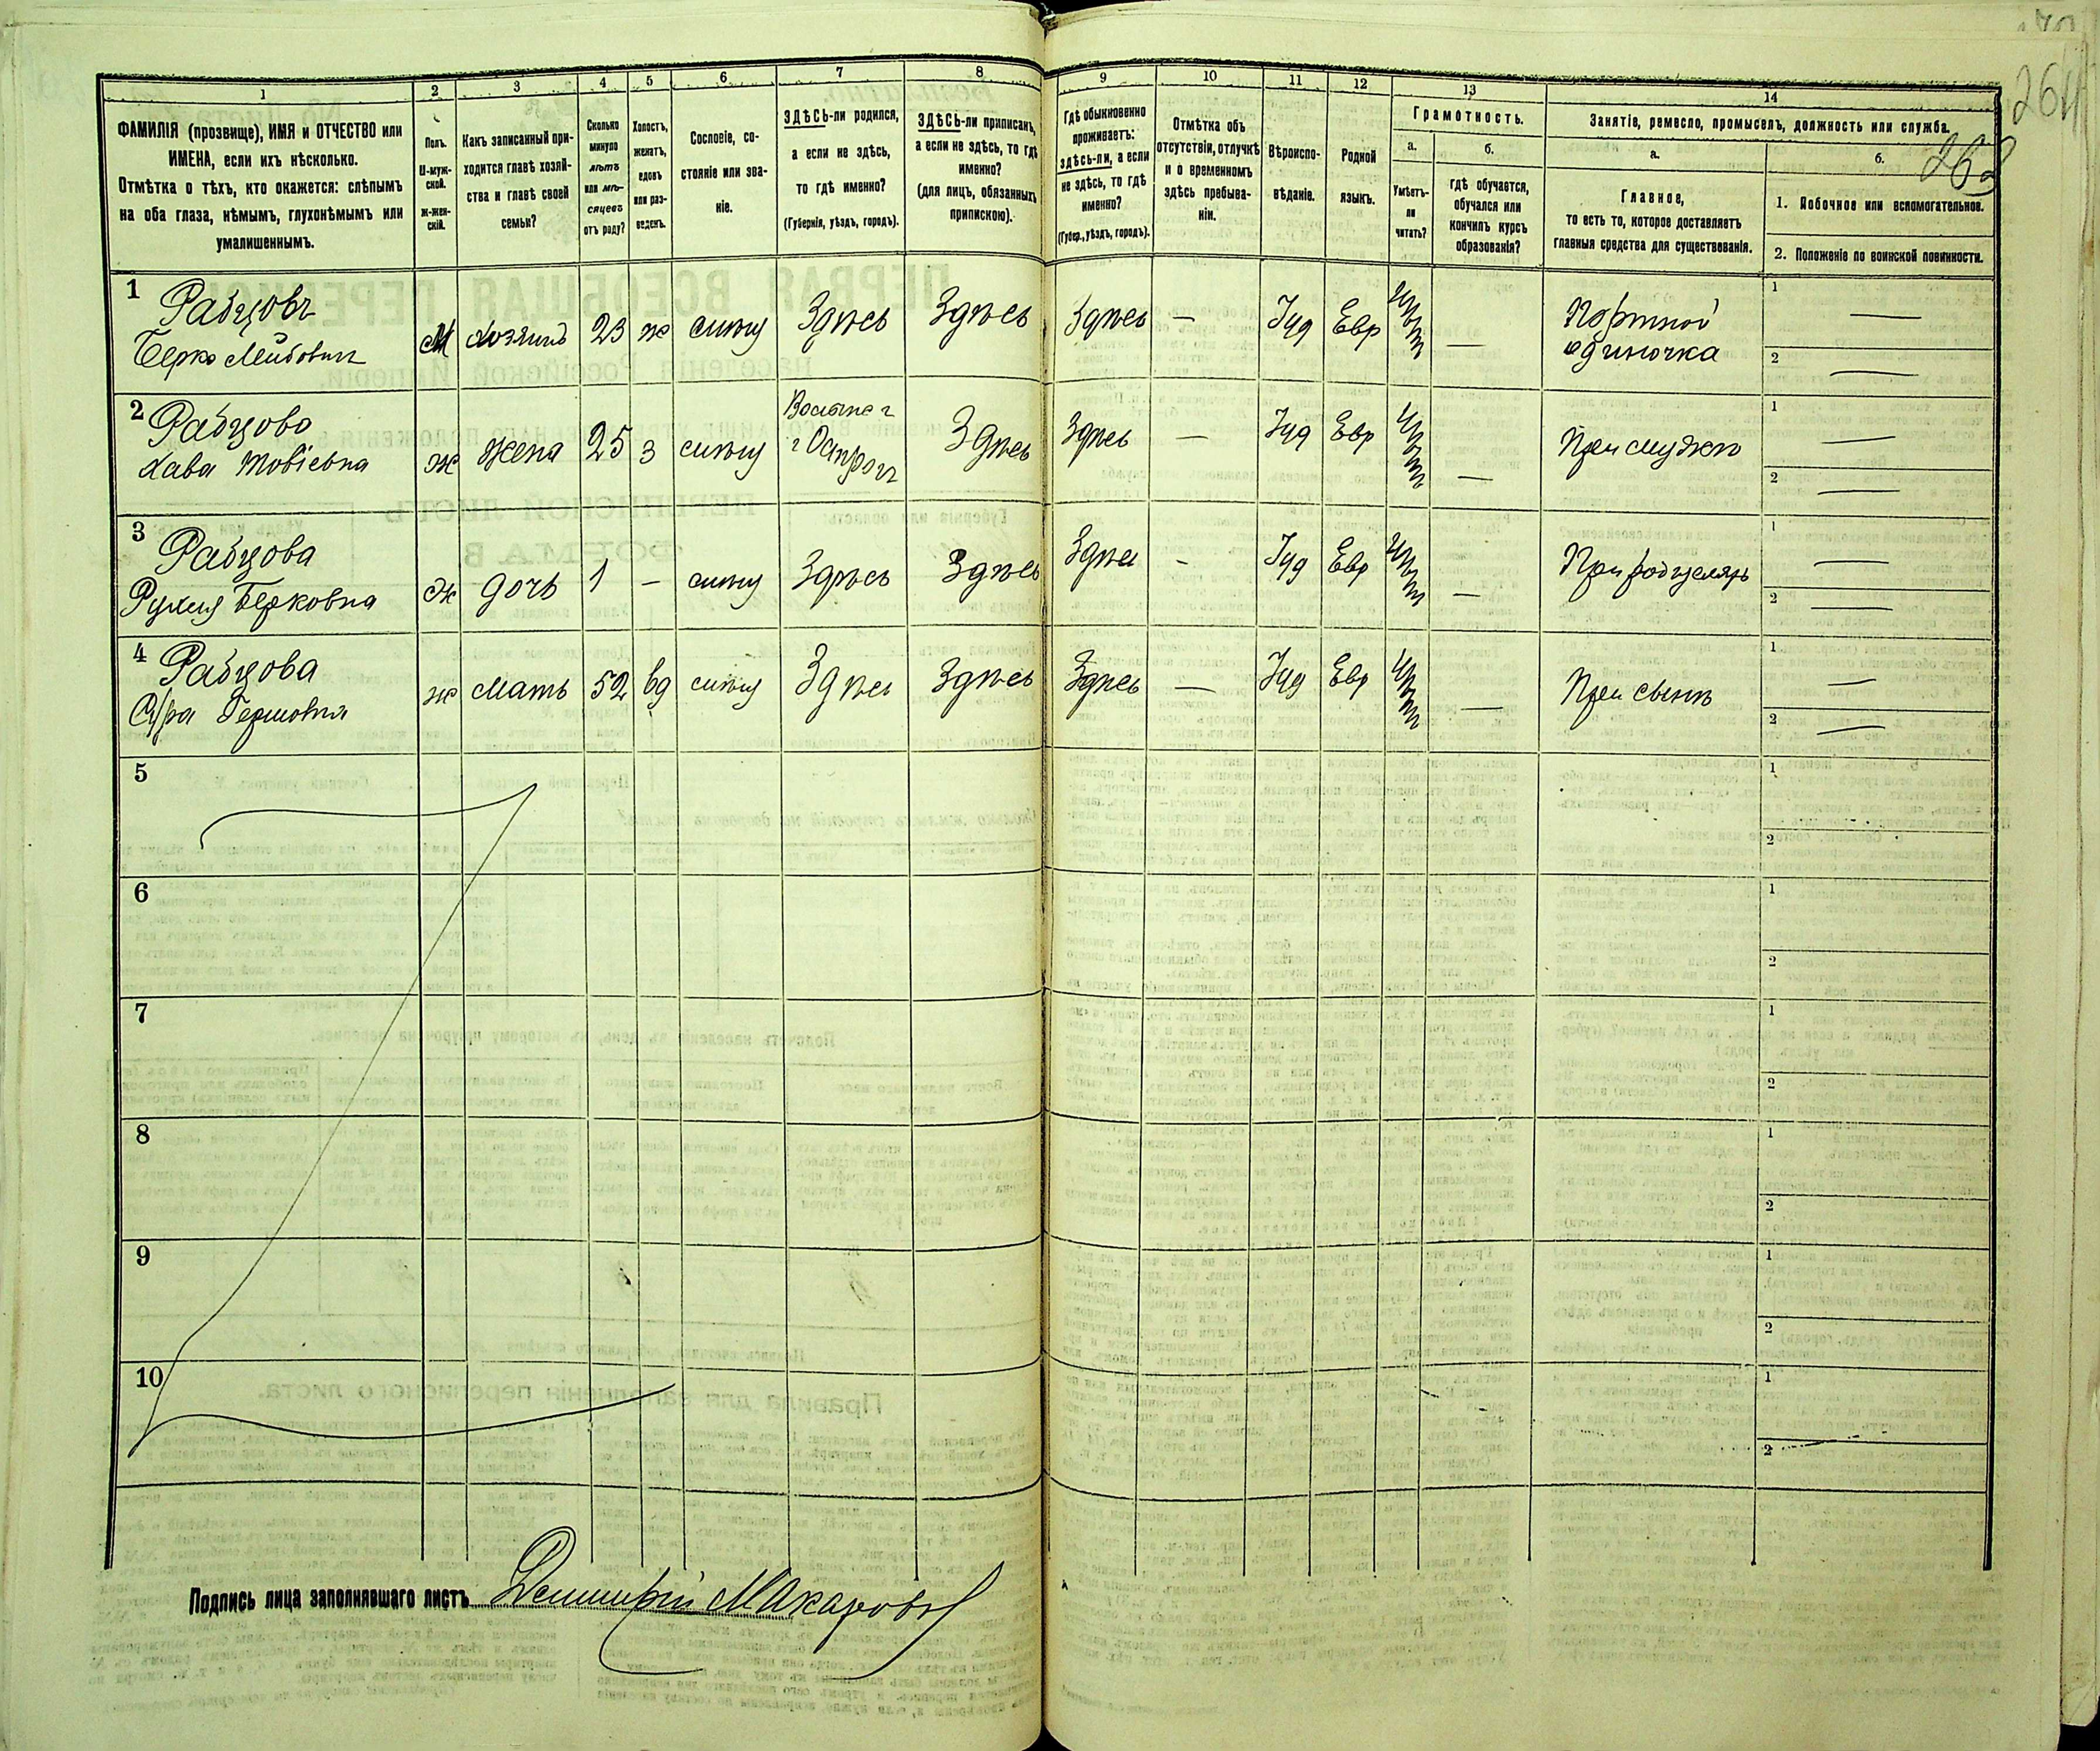 264
268
1
2
3
4
5
6
7
8
9
10
11
12
13
14
ФАМИЛІЯ (прозвище), ИМЯ и ОТЧЕСТВО или
ИМЕНА, если ихъ нѣсколько.
Отмѣтка о тѣхъ, кто окажется: слѣпымъ
на оба глаза, нѣмымъ, глухонѣмымъ или
умалишеннымъ.
Полъ.
М-муж-
ской.
Ж-жен-
скій.
Какъ записанный при-
ходится главѣ хозяй-
ства и главѣ своей
семьи?
Сколько
минуло
лѣтъ
или мѣ-
сяцевъ
отъ роду?
Холостъ,
женатъ,
вдовъ
или раз-
веденъ.
Сословіе, со-
стояніе или зва-
ніе.
ЗДѢСЬ-ли родился,
а если не здѣсь,
то гдѣ именно?
(Губернія, уѣздъ, городъ).
ЗДѢСЬ-ли приписанъ,
а если не здѣсь, то гдѣ
именно?
(для лицъ, обязанныхъ
припискою).
Гдѣ обыкновенно
проживаетъ:
здѣсь-ли, а если
не здѣсь, то гдѣ
именно?
(Губер., уѣздъ, городъ).
Отмѣтка объ
отсутствіи, отлучкѣ
и о временномъ
здѣсь пребыва-
ніи.
Вѣроиспо-
вѣданіе.
Родной
языкъ.
Грамотность.
а.
Умѣетъ-
ли
читать?
б.
гдѣ обучается,
обучался или
кончилъ курсъ
образованія?
Занятіе, ремесло, промыселъ, должность или служба.
а.
Главное,
то есть то, которое доставляетъ
главныя средства для существованія.
б.
1. Побочное или вспомогательное.
2. Положеніе по воинской повинности.
1 Рабцовъ
Берко Лейбович М хозяинъ 23 ж мѣщ Здѣсь Здѣсь Здѣсь — Іуд Евр — Портной
одиночка
1 —
2 —
2 Рабцова
Хава Товіевна ж жена 25 з мѣщ г Острогъ Здѣсь Здѣсь — Іуд Евр — При мужѣ
1 —
2 —
3 Рабцова
Рухля Берковна ж дочь 1 — мѣщ Здѣсь Здѣсь Здѣсь - Іуд Евр — При родителяхъ
1 —
2 —
4 Рабцова
ж мать 52 вд мѣщ Здѣсь Здѣсь Здѣсь — Іуд Евр — При сынѣ
1 —
2 —
5
1
2
6
1
2
7
1
2
8
1
2
9
1
2
10
1
2
Подпись лица заполнявшаго листъ Дмитрій Макаровъ